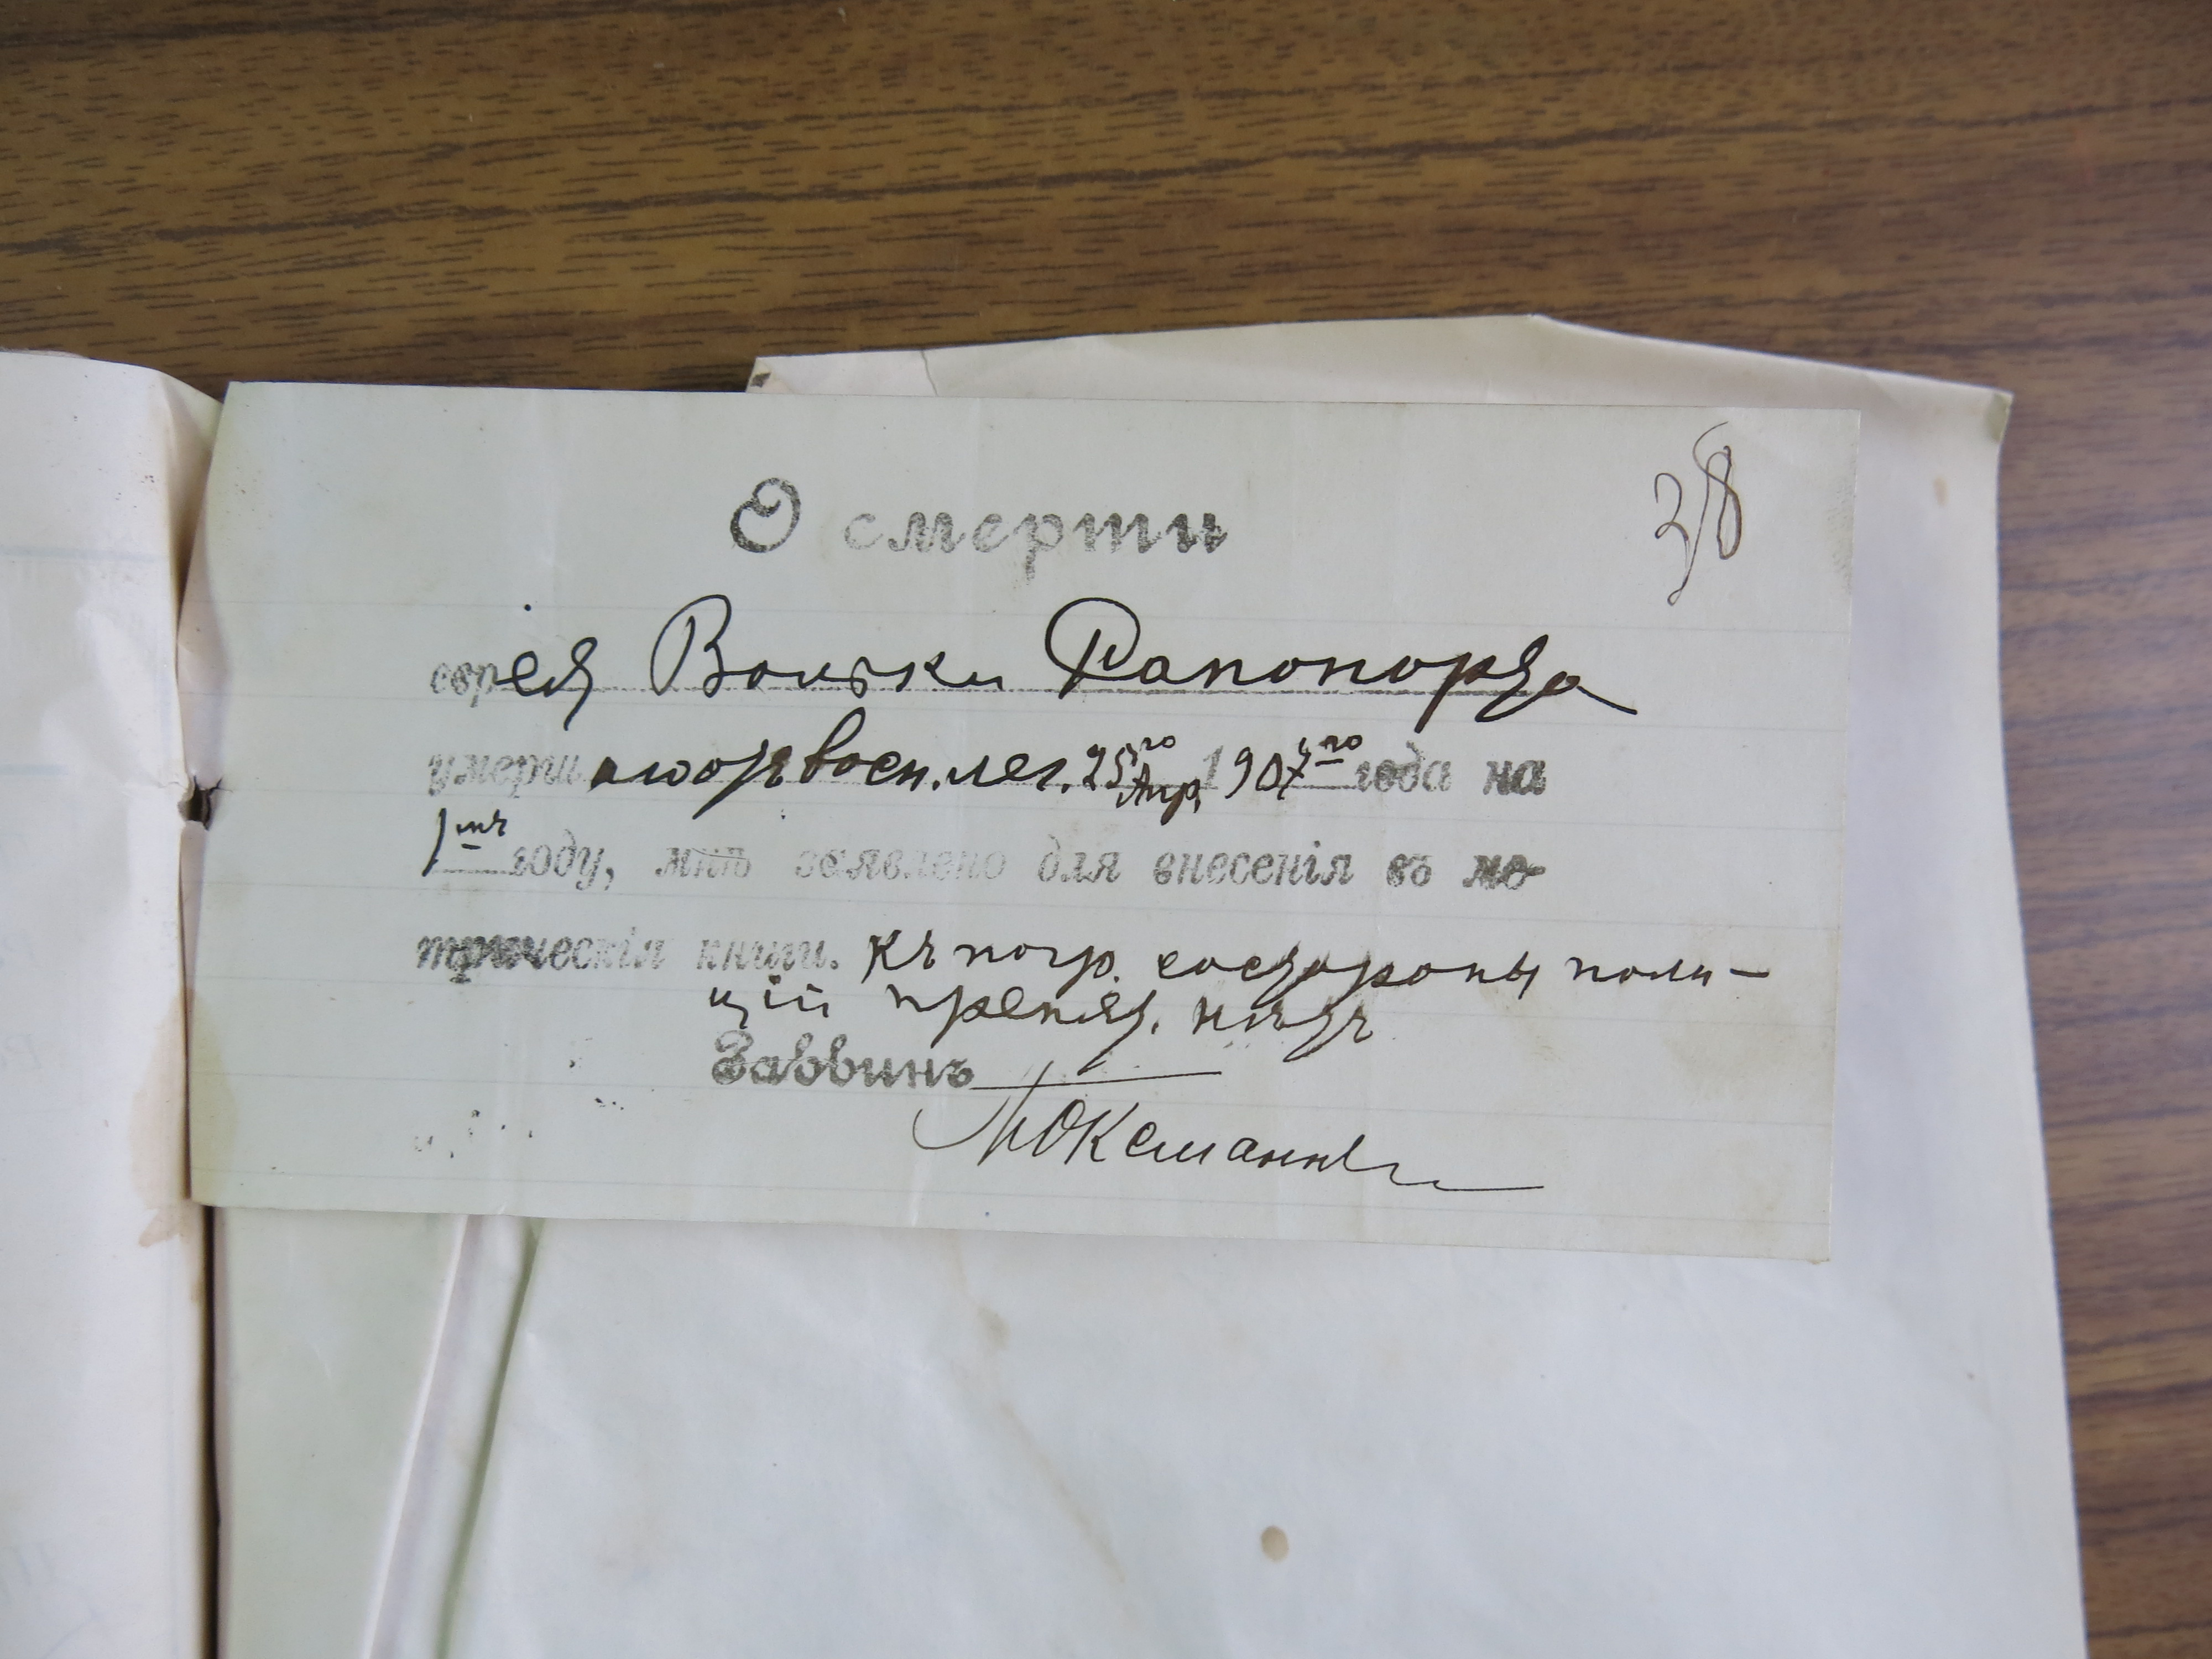 38
О смерти
еврея Вольки Рапопорта
умерш. отъ восп. лег. 25го Апр. 1907го года на
1мъ году, мнѣ заявлено для внесенія въ ме-
трическія книги. Къ погр. состороны поли-
ціи препят. нѣтъ
Раввинъ